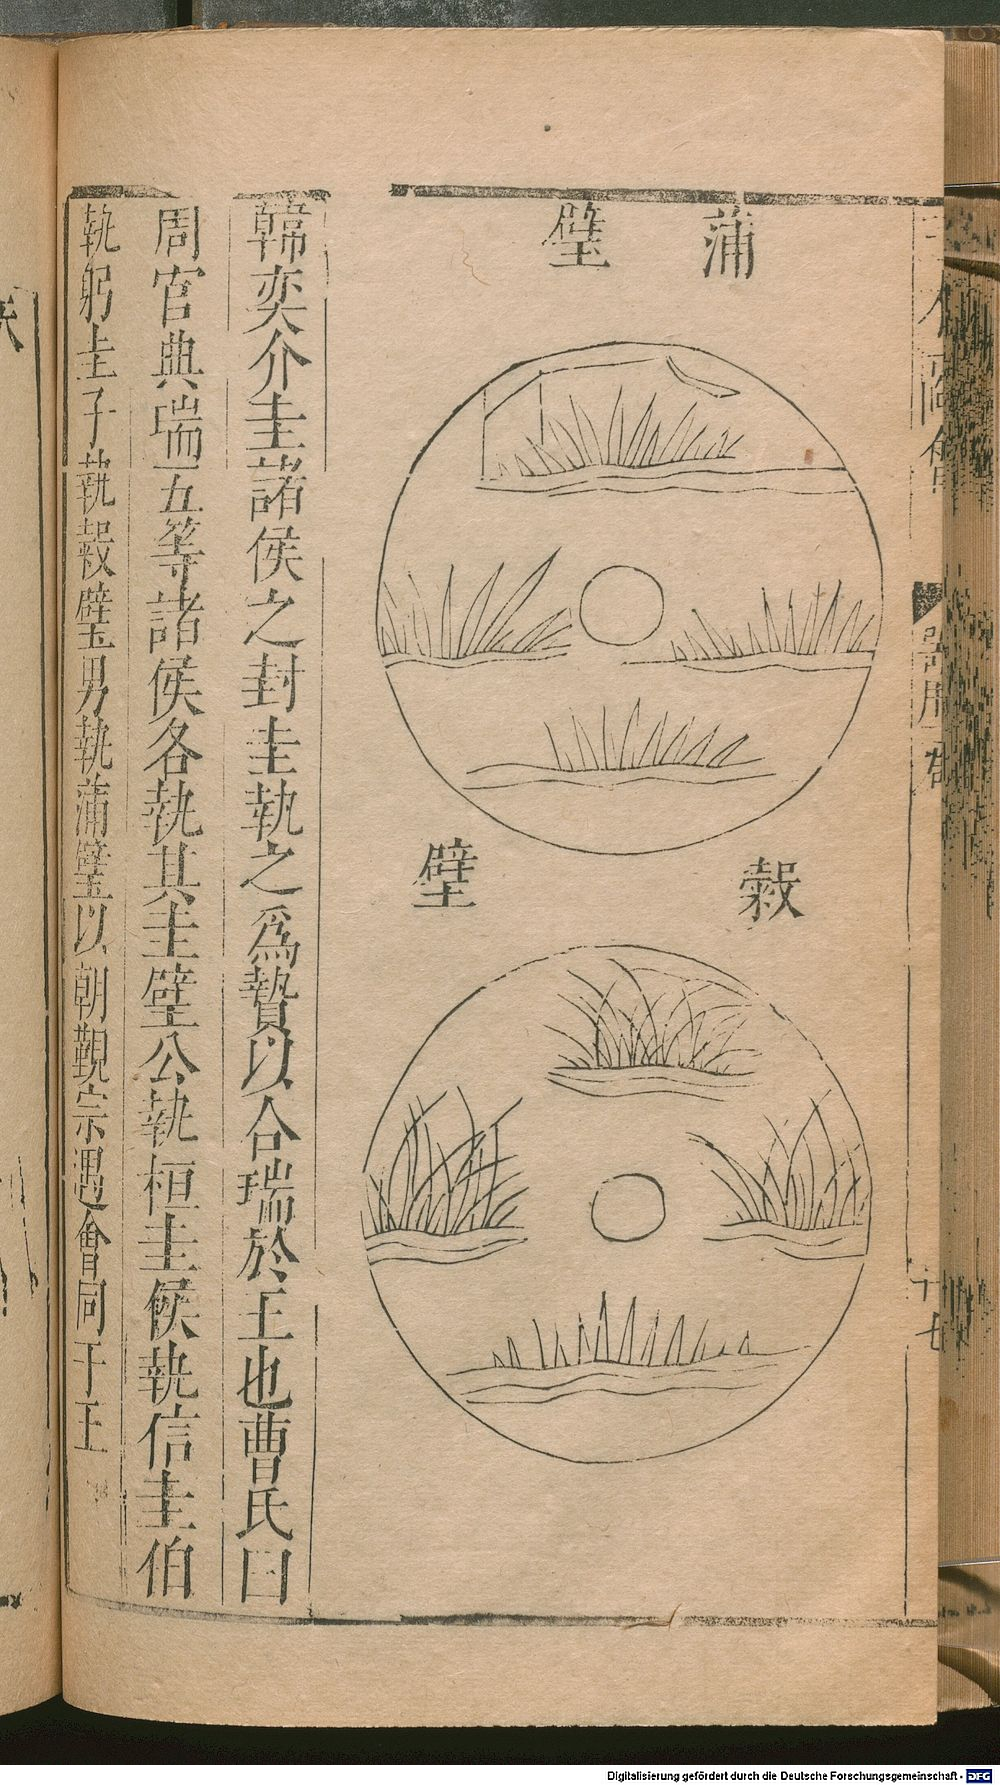 蒲璧
穀璧
韓奕介圭諸侯之封圭執之爲贄以合瑞於王也曹氏曰
周官典瑞五等諸侯各執其圭璧公執桓圭侯執信圭伯
執躬圭子執穀璧男執蒲璧以朝覲宗遇會同于王
十七
Digitalisierung gefördert durch die Deutsche Forschungsgemeinschaft - DFG